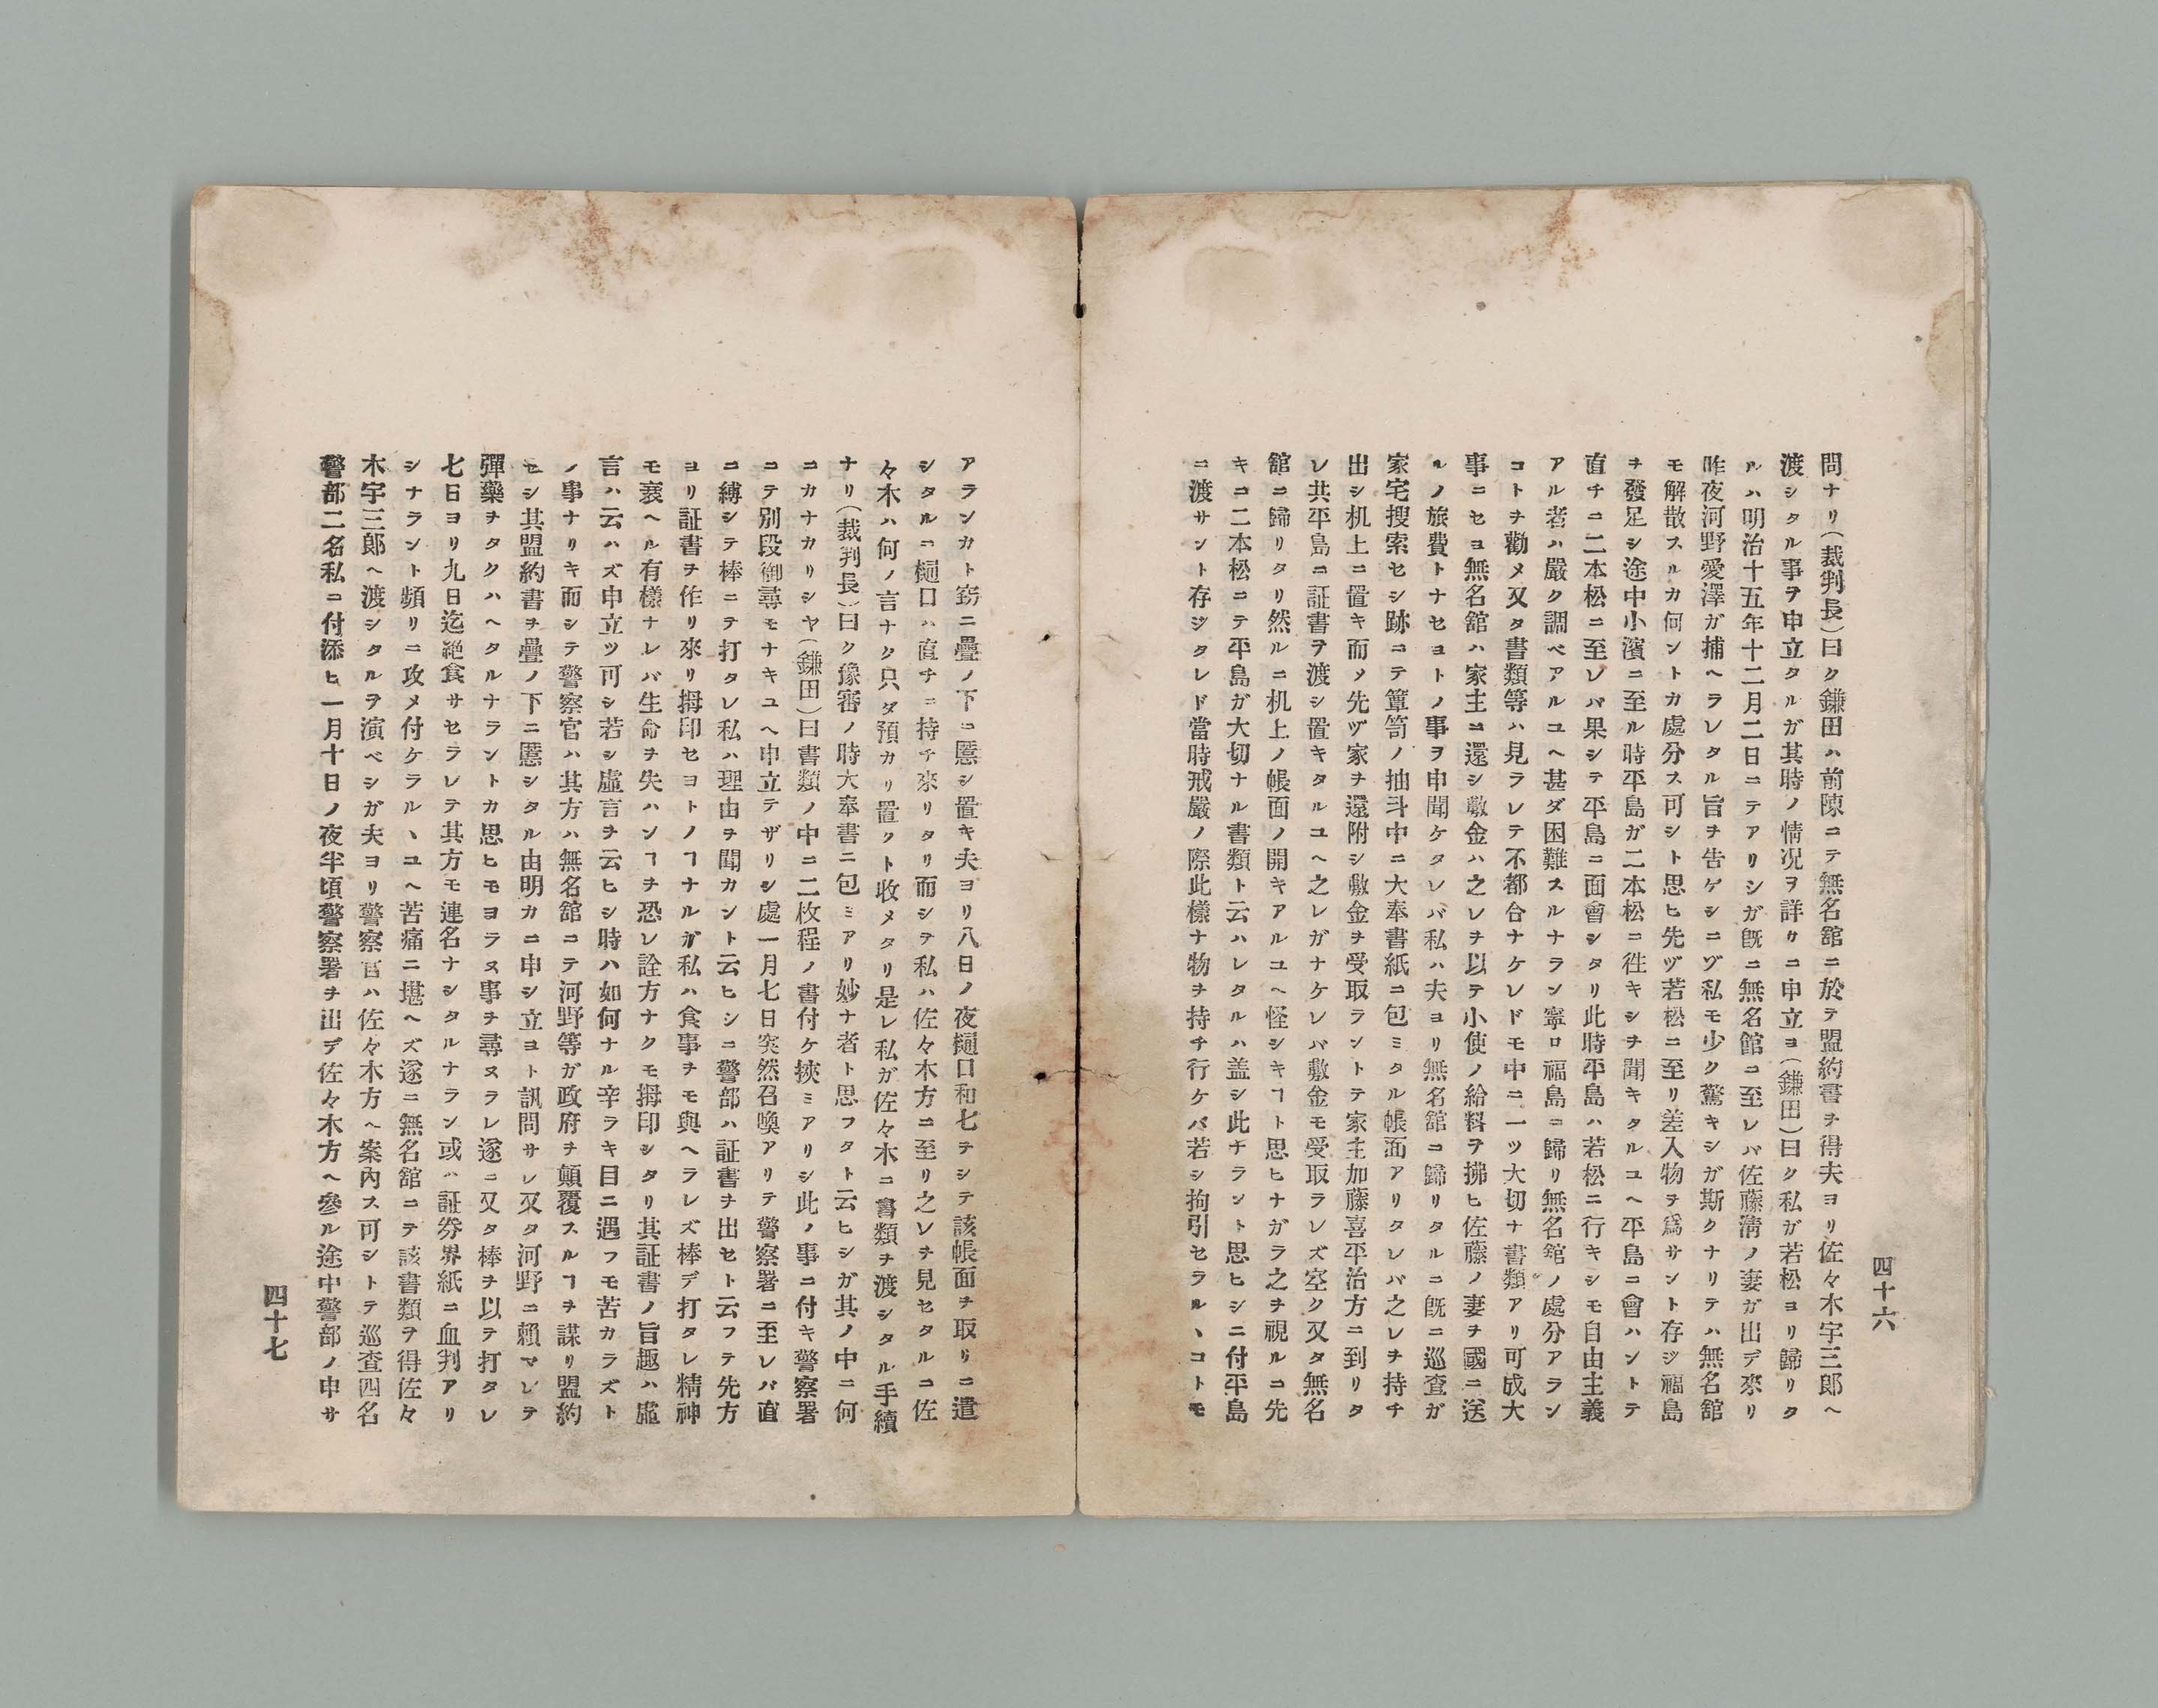 四十六
問ナリ(裁判長)曰ク鎌田ハ前陳ニテ無名舘ニ於テ盟約書ヲ得夫ヨリ佐々木宇三郎ヘ
渡シタル事ヲ申立タルガ其時ノ情况ヲ詳カニ申立ヨ(鎌田)曰ク私ガ若松ヨリ歸リタ
ルハ明治十五年十二月二日ニテアリシガ既ニ無名館ニ至レバ佐藤淸ノ妻ガ出デ來リ
昨夜河野愛澤ガ捕ヘラレタル旨ヲ告ゲシニゾ私モ少ク驚キシガ斯クナリテハ無名舘
モ解散スルカ何ントカ處分ス可シト思ヒ先ヅ若松ニ至リ差入物ヲ爲サント存ジ福島
ヲ發足シ途中小濱ニ至ル時平島ガ二本松ニ徃キシヲ聞キタルユヘ平島ニ會ハントテ
直チニ二本松ニ至レバ果シテ平島ニ面會シタリ此時平島ハ若松ニ行キシモ自由主義
アル者ハ嚴ク調ベアルユヘ甚ダ困難スルナラン寧ロ福島ニ歸リ無名舘ノ處分アラン
コトヲ勸メ又タ書類等ハ見ラレテ不都合ナケレドモ中ニ一ツ大切ナ書類アリ可成大
事ニセヨ無名舘ハ家主ニ還シ敷金ハ之レヲ以テ小使ノ給料ヲ拂ヒ佐藤ノ妻ヲ國ニ送
ルノ旅費トナセヨトノ事ヲ申聞ケタレバ私ハ夫ヨリ無名舘ニ歸リタルニ既ニ巡査ガ
家宅搜索セシ跡ニテ簞笥ノ抽斗中ニ大奉書紙ニ包ミタル帳面アリタレバ之レヲ持チ
出シ机上ニ置キ而ノ先ヅ家ヲ還附シ敷金ヲ受取ラントテ家主加藤喜平治方ニ到リタ
レ共平島ニ証書ヲ渡シ置キタルユヘ之レガナケレバ敷金モ受取ラレズ空ク又タ無名
舘ニ歸リタリ然ルニ机上ノ帳面ノ開キアルユヘ怪シキヿト思ヒナガラ之ヲ視ルニ先
キニ二本松ニテ平島ガ大切ナル書類ト云ハレタルハ盖シ此チラント思ヒシニ付平島
ニ渡サント存ジタレド當時戒嚴ノ際此樣ナ物ヲ持チ行ケバ若シ拘引セラルヽコトモ
アランカト窃ニ疊ノ下ニ匿シ置キ夫ヨリ八日ノ夜樋口和七ヲシテ該帳面ヲ取リニ遣
シタルニ樋口ハ直チニ持チ來リタリ而シテ私ハ佐々木方ニ至リ之レヲ見セタルニ佐
々木ハ何ノ言ナク只ダ預カリ置クト收メタリ是レ私ガ佐々木ニ書類ヲ渡シタル手續
ナリ(裁判長)曰ク豫審ノ時大奉書ニ包ミアリ妙ナ者ト思フタト云ヒシガ其ノ中ニ何
ニカナカリシヤ(鎌田)曰書類ノ中ニ二枚程ノ書付ケ挾ミアリシ此ノ事ニ付キ警察署
ニテ別段御尋モナキユヘ申立テザリシ處一月七日突然召喚アリテ警察署ニ至レバ直
ニ縛シテ棒ニテ打タレ私ハ理由ヲ聞カント云ヒシニ警部ハ証書ヲ出セト云フテ先方
ヨリ証書ヲ作リ來リ拇印セヨトノヿナルガ私ハ食事ヲモ與ヘラレズ棒デ打タレ精神
モ衰ヘル有樣ナレバ生命ヲ失ハンヿヲ恐レ詮方ナクモ拇印シタリ其証書ノ旨趣ハ虛
言ハ云ハズ申立ツ可シ若シ虛言ヲ云ヒシ時ハ如何ナル辛ラキ目ニ遇フモ苦カラズト
ノ事ナリキ而シテ警察官ハ其方ハ無名舘ニテ河野等ガ政府ヲ顛覆スルヿヲ謀リ盟約
セシ其盟約書ヲ疊ノ下ニ匿シタル由明カニ申シ立ヨト訊問サレ又タ河野ニ賴マレテ
彈藥ヲタクハヘタルナラントカ思ヒモヨラヌ事ヲ尋ヌラレ遂ニ又タ棒ヲ以テ打タレ
七日ヨリ九日迄絕食サセラレテ其方モ連名ナシタルナラン或ハ証劵界紙ニ血判アリ
シナラント頻リニ攻メ付ケラルヽユヘ苦痛ニ堪ヘズ遂ニ無名舘ニテ該書類ヲ得佐々
木宇三郎ヘ渡シタルヲ演ベシガ夫ヨリ警察官ハ佐々木方ヘ案內ス可シトテ巡查四名
警部二名私ニ付添ヒ一月十日ノ夜半頃警察署ヲ出デ佐々木方ヘ參ル途中警部ノ申サ
四十七